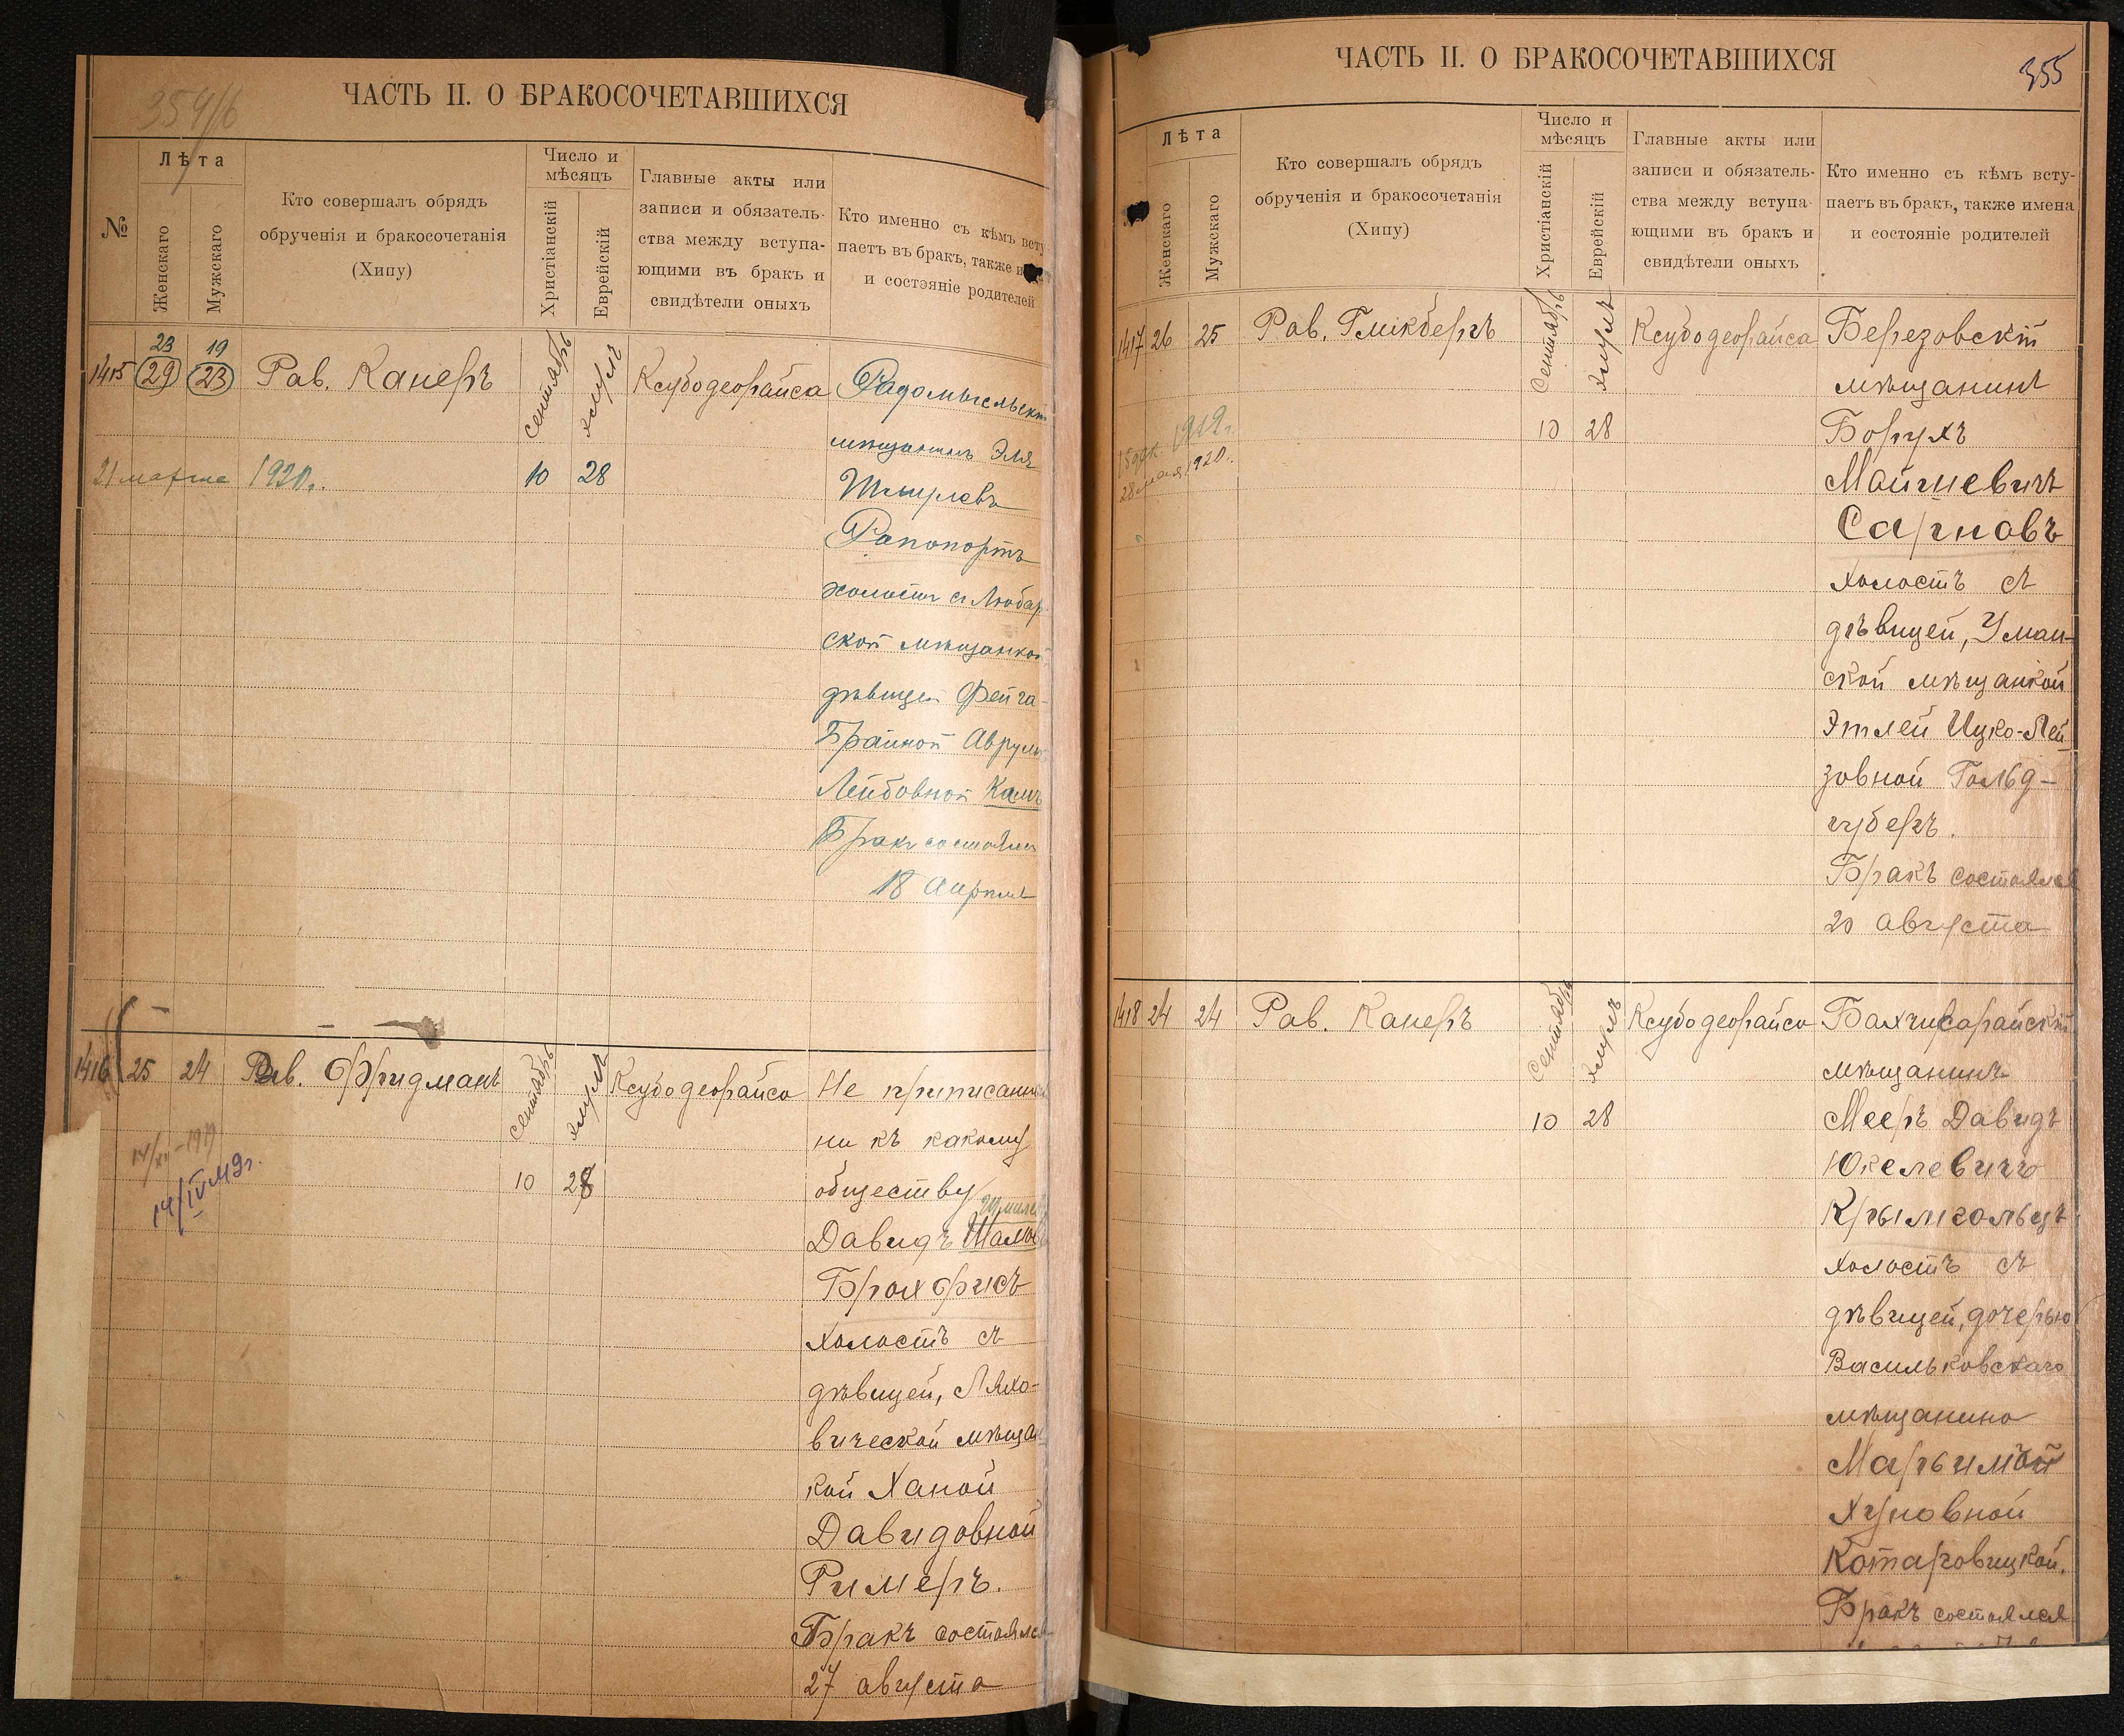 354/6
ЧАСТЬ II. О БРАКОСОЧЕТАВШИХСЯ
№
Лѣта
Женскаго
Мужскаго
Кто совершалъ обрядъ
обрученія и бракосочетанія
(Хипу)
Число и
мѣсяцъ
Христіанскій
Еврейскій
Главные акты или
записи и обязатель-
ства между вступа-
ющими въ бракъ и
свидѣтели оныхъ
Кто именно съ кѣмъ всту
паетъ въ бракъ, также и
и состэяніе родителей
23 19
1415 29 23 Рав. Канеръ
сентябрь
элулъ
10 28
Ксубодеорайса
21 марта 1920г.
Радомысльскій
мѣщанинъ Эля
Шмулевъ
Рапопортъ
холостъ с Любар
ской мѣщанкой
дѣвицей Фейга-
Брайной Аврумъ
Лейбовной
Бракъ состоялся
18 Апрѣля
1416 25 24 Рав. Фридманъ
сентябрь
элулъ
10 28
Ксубодеорайса
14/IV
Не приписанный
ни къ какому
обществу
Давидъ
Брахфисъ
холостъ съ
дѣвицей, Ляхо-
вической мѣщан
кой Ханой
Давидовной
Римеръ.
Бракъ состоялся
27 августа
ЧАСТЬ II. О БРАКОСОЧЕТАВШИХСЯ
355
Лѣта
Женскаго
Мужскаго
Кто совершалъ обрядъ
обрученія и бракосочетанія
(Хипу)
Число и
мѣсяцъ
Христіанскій
Еврейскій
Главные акты или
записи и обязатель-
ства между вступа-
ющими въ бракъ и
свидѣтели оныхъ
Кто именно съ кѣмъ всту-
паетъ въ бракъ, также имена
и состояніе родителей
1417 26 25 Рав. Гликбергъ
Сентябрь
элулъ
10 28
Ксубодеорайса
1919г.
28 мая 1920г.
Березовскій
мѣщанинъ
Борухъ
Мойшевичъ
Сагновъ
холостъ съ
дѣвицей, Уман-
ской мѣщанкой
Этлей Ицко-Лей
зовной Гольд-
губеръ.
Бракъ состоялся
20 августа
1418 24 24 Рав. Канеръ
Сентябрь
элулъ
10 28
Ксубодеорайса
Бахчисарайскій
мѣщанинъ
Мееръ Давидъ
Юкелевичъ
Крымгольцъ
холостъ съ
дѣвицей, дочерью
Васильковскаго
мѣщанина
Марьимой
Хуновной
Котаровицкой.
Бракъ состоялся